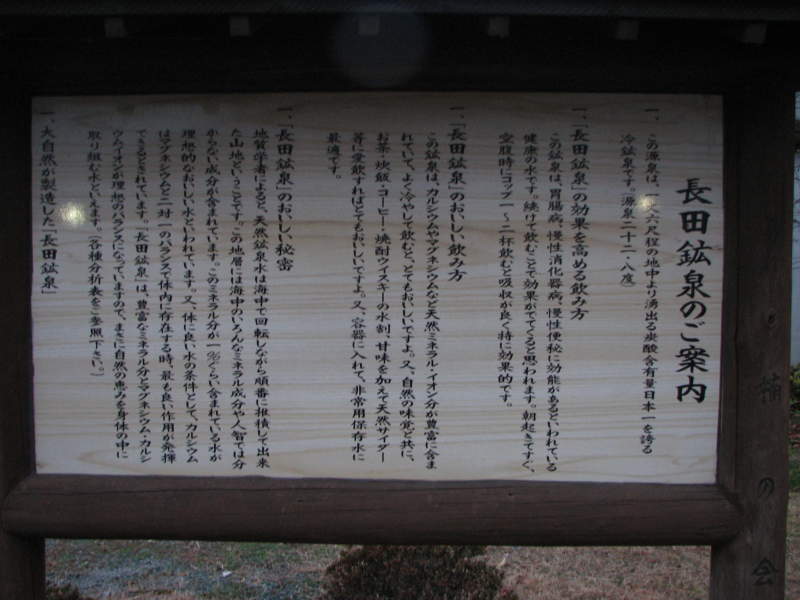 長田鉱泉のご案内
一、この源泉は、一〇六尺程の地中より湧出る炭酸含有量日本一を誇る
冷鉱泉です。(源泉二十二・八度)
一、「長田鉱泉」の効果を高める飲み方
この鉱泉は、胃腸病、慢性消化器病、慢性便秘に効能があるといわれている
健康の水です。続けて飲むことで効果がでてくると思われます。朝起きてすぐ、
空腹時にコップ一〜二杯飲むと吸収が良く特に効果的です。
一、「長田鉱泉」のおいしい飲み方
この鉱泉は、カルシウムやマグネシウムなど天然ミネラル・イオン分が豊富に含ま
れていて、よく冷やして飲むと、とてもおいしいですよ。又、自然の味覚と共に、
お茶・炊飯・コーヒー・焼酎・ウイスキーの水割、甘味を加えて天然サイダー
等に愛飲すればとてもおいしいですよ。又、容器に入れて、非常用保存水に
最適です。
一、「長田鉱泉」のおいしい秘密
地質学者によると、天然鉱泉水は海中で回転しながら順番に推積して出来
た山地ということです。この地層には海中のいろんなミネラル成分や人智では分
からない成分が含まれています。このミネラル分が一%ぐらい含まれている水が
理想的なおいしい水といわれています。又、体に良い水の条件として、カルシウム
はマグネシウムと二対一のバランスで体内に存在する時、最も良い作用が発揮
できるとされています。「長田鉱泉」は、豊富なミネラル分とマグネシウム・カルシ
ウムイオンが理想のバランスになっていますので、まさに自然の恵みを身体の中に
取り組む水といえます。(各種分析表をご参照下さい。)
一、大自然が製造した「長田鉱泉」
楠の会